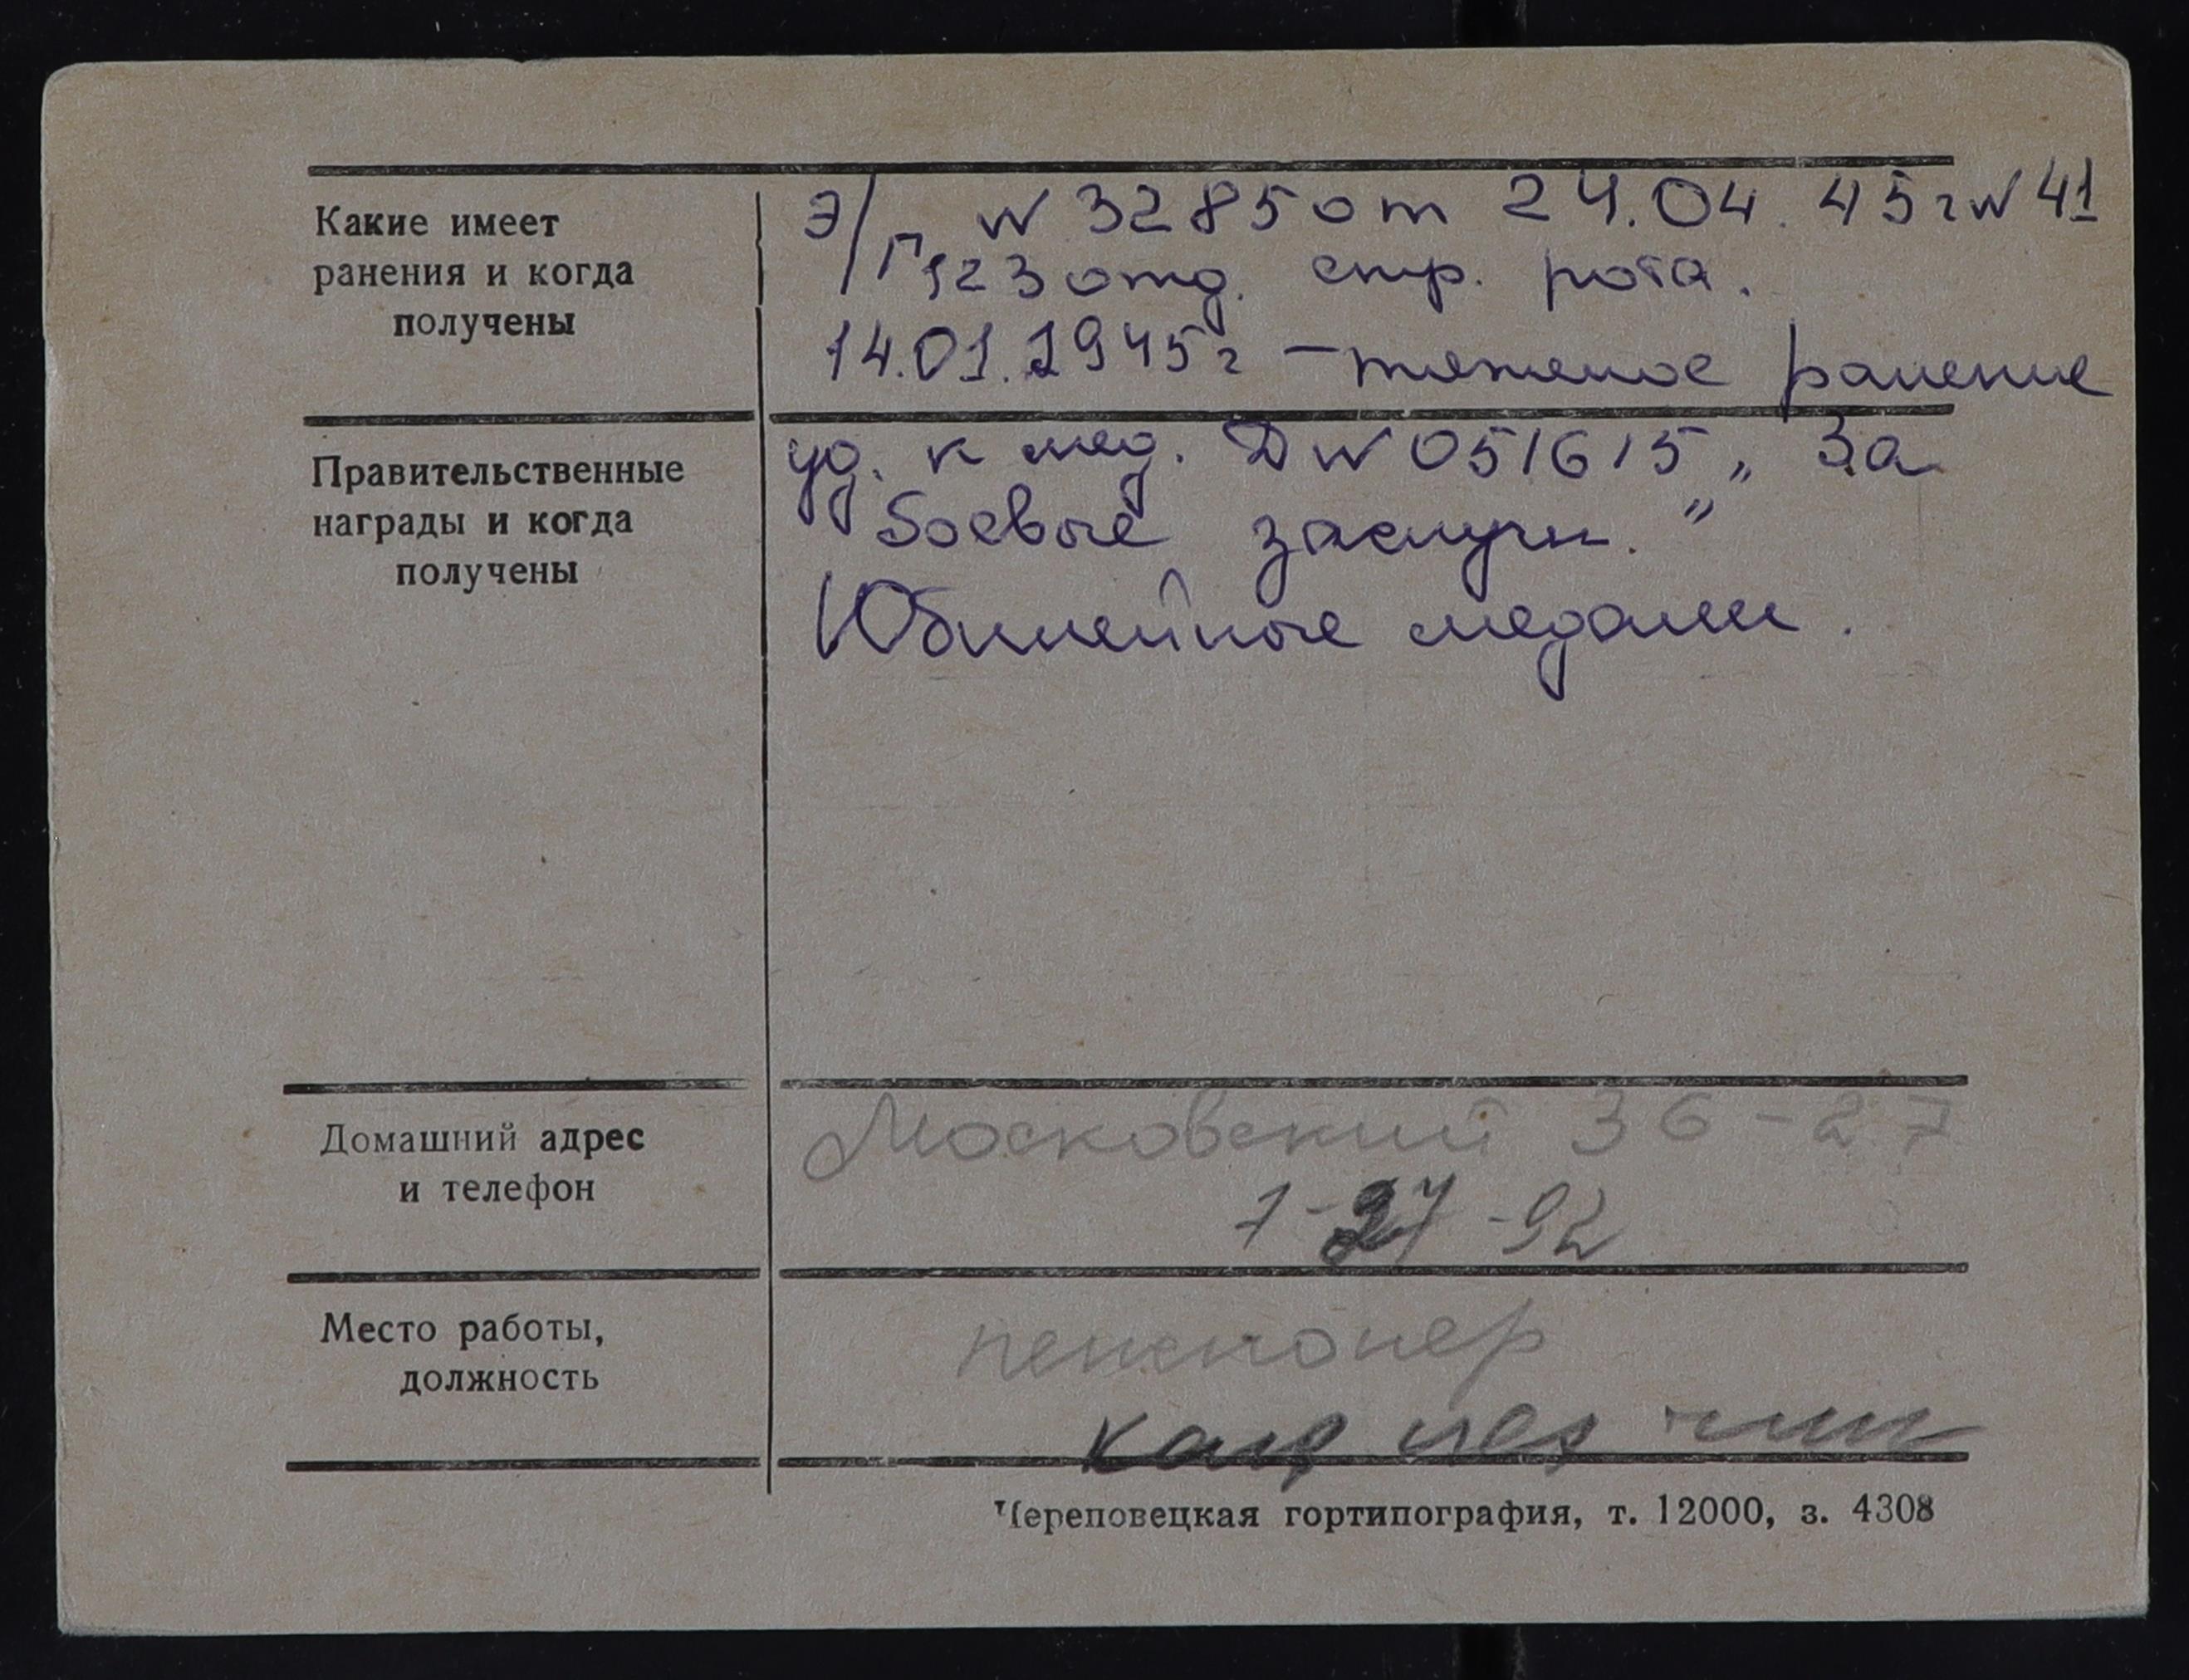 Какие имеет
ранения и когда
получены
Э/Г N 3285 от 24.04.45г N 41
123 отд. стр. рота.
14.01.1945г – тяжелое ранение
Правительственные
награды и когда
получены
уд. к мед. Д N 051615 „За
боевые заслуги."
Юбилейные медали.
Домашний адрес
и телефон
Московский 36-27
7-27-92
Место работы,
должность
пенсионер
Череповецкая гортипография, т. 12000, з. 4308